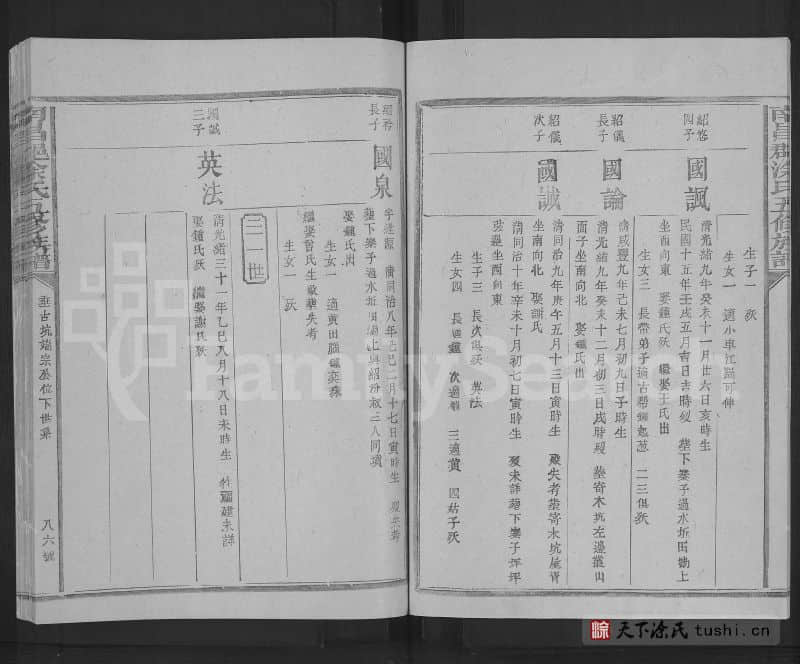 生子一 殀
生女一 適小車江蹋可伸
紹悠四子
國諷
清光緒九年癸未十一月廿六日亥時生
民國十五年壬戌五月吉日吉時歿 塟下欒子過水坵田勘上
坐酉向東 娶鍾氏殀 繼娶王氏出
生女三 長帶弟子適古 二三俱殀
紹儀長子
國論
清咸豐九年己未七月初九日子時生
清光緒九年癸未十二月初三日戌時歿 塟寄木坑左邊叢山
面子坐南向北 娶鍾氏出
紹儀次子
國誠
清同治九年庚午五月十三日寅時生 歿失考塟寄木坑屋背
坐南向北 娶謝氏
清同治十年辛未十月初七日寅時生 歿未詳塟下欒子坪坪
坐酉向東
生子三 長次俱殀 英法
生女四 長適鍾 次適賴 三適黃 四姑子殀
長子
國泉
清同治八年己巳二月十七日寅時生 歿失考
塟下欒子過水坵田勘上與紹叔三人同墳
娶鍾氏出
生女一 適黃田鍾奕森
繼娶曾氏生歿塟失考
生女一 殀
三二世
國誠三子
英法
清光緒三十一年乙巳八月十八日未時生 往福建未詳
娶鍾氏殀 繼娶謝氏殀
南昌郡涂氏五修族譜
南昌郡涂氏五修族譜
八六號
Family Sear
涂 天下涂氏 tushi.cn